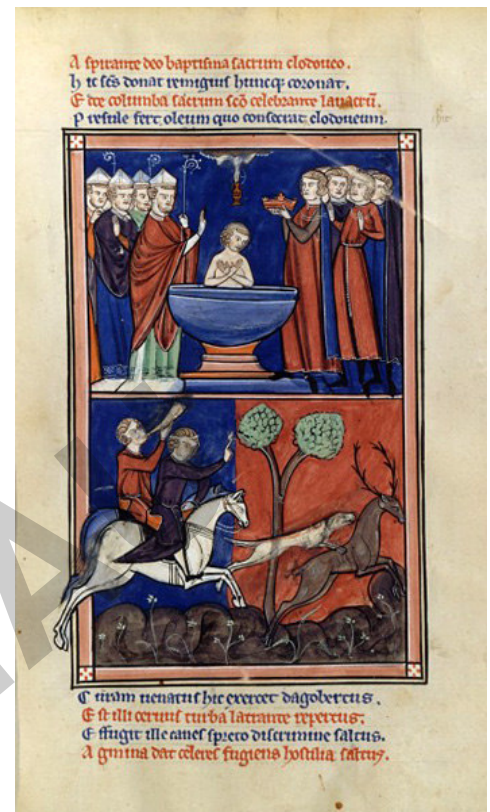 A spirante deo baptisma sacrum clodoueo.
h ic scs donat remigius huncq; coronat.
E cce columba sacrum sco celebrante lauacru.
P resule fert oleum quo consecrat clodoueum.
C uram uenatus hic exercet dagobertus.
E st illi ceruus turba latrante repertus.
E ffugit ille canes spreto discrimine saltus.
A gmina dat celeres fugiens hostilia saltus.